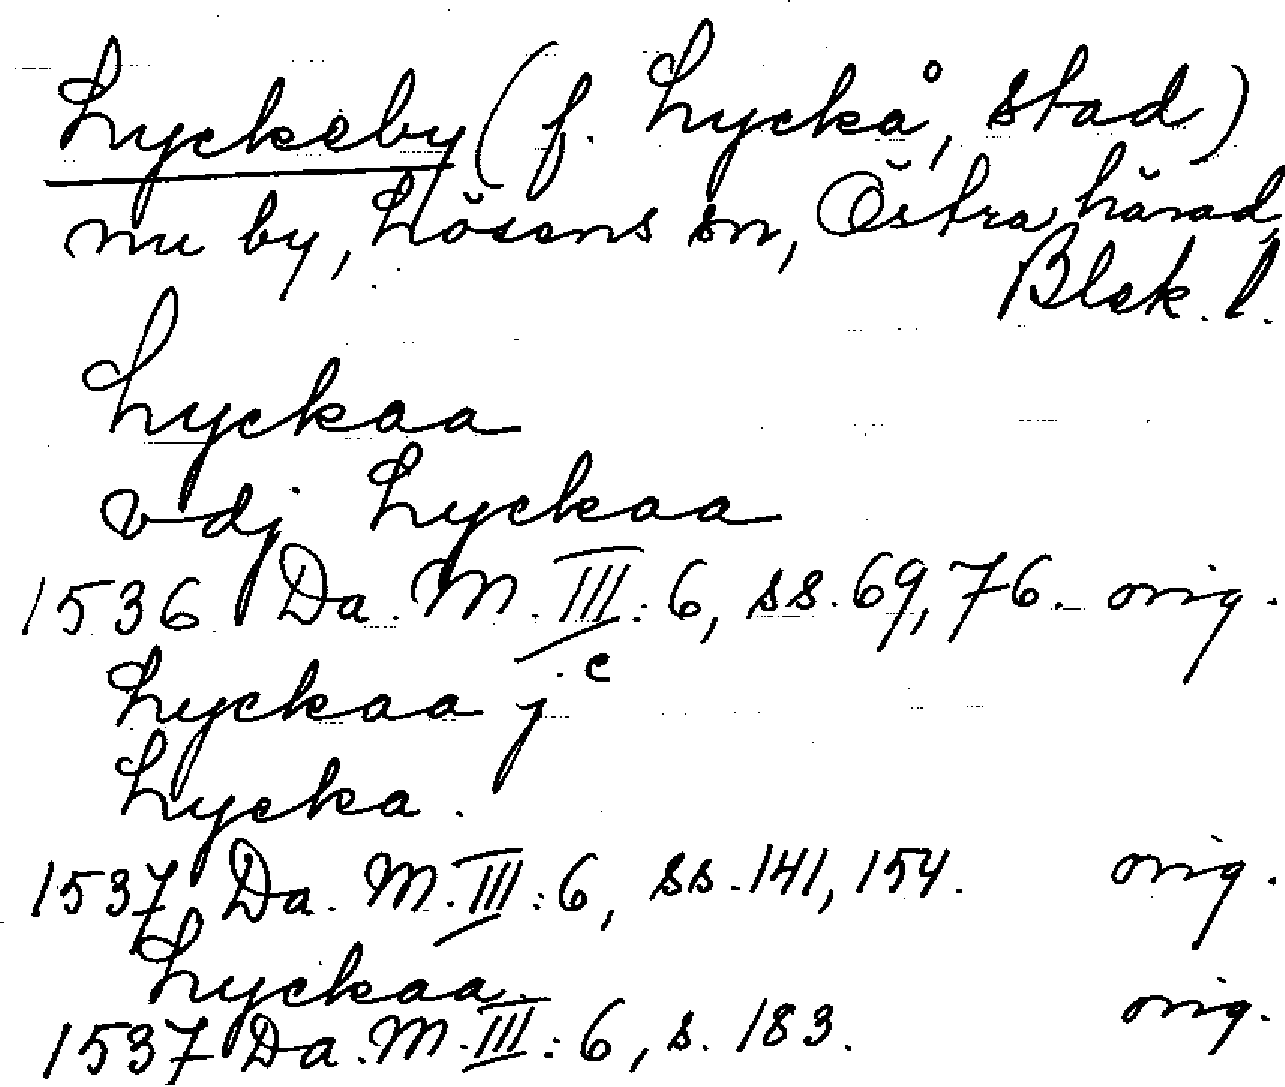 Lyckeby (f. Lyckå, stad)
nu by, Lösens sn, Östra härad,
Blek. l.
Lyckaa
vdj Lyckaa
1536 Da. M. III: 6, ss. 69, 76. orig.
Lyckaa j c
Lycka.
1537 Da. M. III: 6, ss. 141, 154. orig.
Lyckaa.
1537 Da. M. III: 6, s. 183. orig.